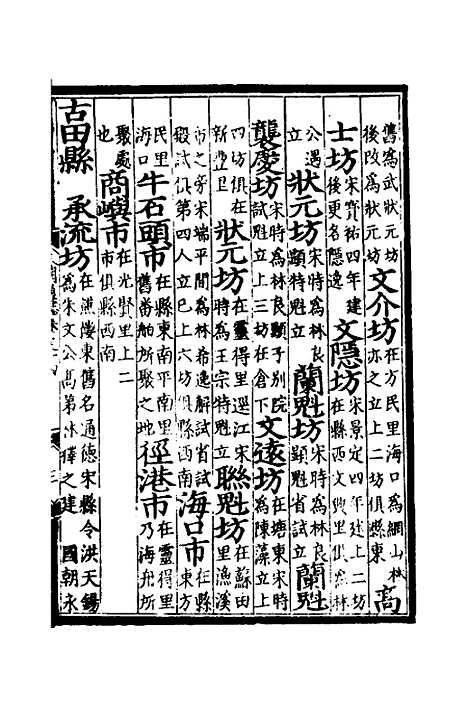 舊為武狀元坊後改為狀元坊 文介坊 在方民里海口為網山林亦之立上二坊俱縣東 高
士坊 宋寶祐四年建後更名隱逸 文隱坊 宋景定四年建上二坊在縣西文興里俱為林
公遇立 狀元坊 宋時為林良顯特魁立 蘭魁坊 宋時為林良顯魁省試立 蘭魁
襲慶坊 宋時為林良顯于別院試魁立上三坊在倉下 文遠坊 在塘東宋時為陳藻立上
四坊俱在新豐里 狀元坊 在靈得里逕江宋時為王宗特魁立 聯魁坊 在蘇田里漁溪
市之旁宋端平間為林希逸解試省試殿試俱第四人立已上六坊俱縣西南 海口市 在縣東方
民里海口 牛石頭市 在縣東南平南里舊番舶所聚之地 徑港市 在靈得里乃海舟所
聚處也 商嶼市 在光賢里上二市俱縣西南
古田縣 承流坊 在東舊名通德宋縣令洪天錫為朱文公高第林擇之建 國朝永